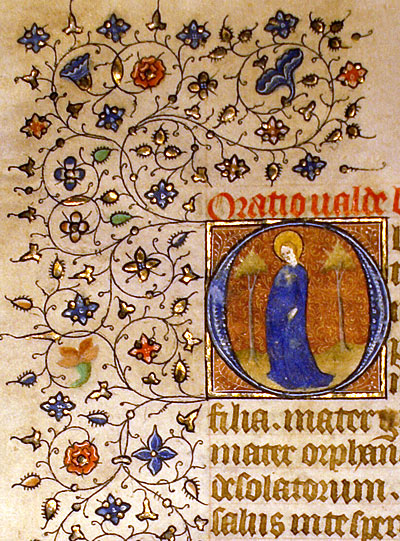 Oratio ualde b
O
filia. mater
mater orphan
desolatorum.
salus in te sper